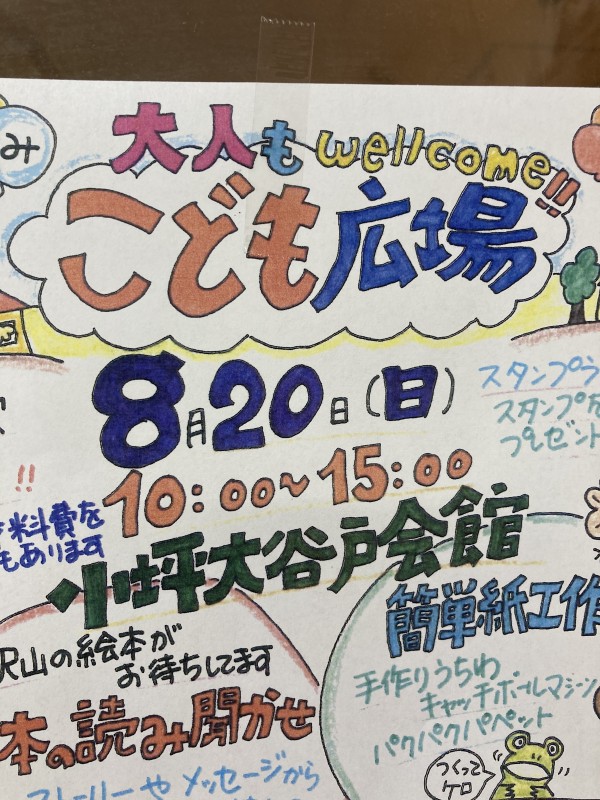 み
大人も wellcome!!
こども広場
8月20日(日)
スタンプラ
スタンプを
プレゼント
!!
10:00~15:00
料費を
もあります
小坪大谷戸会館
沢山の絵本が
お待ちしてます
本の読み聞かせ
ストーリーやメッセージから
簡単紙工作
手作りうちわ
キャッチボールマシン
パクパクパペット
つくって
ケロ